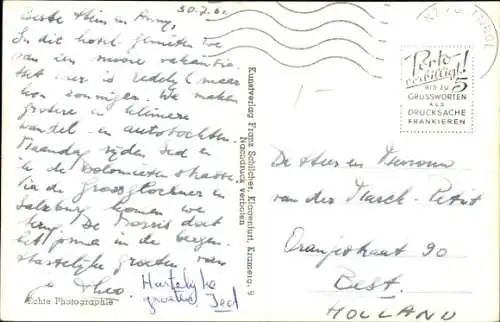 30.7.62
Beste Stien en Anny,
In dit hotel genieten we
van een mooie vakantie.
Het weer is redelijk maar
kon zonniger. We maken
grotere en kleinere
wandel- en autotochten.
Maandag rijden
in de Dolomieten strasse.
Via de Grossglockner en
Salzburg komen we
terug. De Morris doet
het prima in de bergen.
Hartelijke groeten van
je Theo.
Hartelijke
groeten
Echte Photographie
Kunstverlag Franz Schilcher, Klagenfurt, Kramerg. 9
Nachdruck verboten
TIROL
Porto
verbilligt!
BIS ZU
5
GRUSSWORTEN
ALS
DRUCKSACHE
FRANKIEREN
De Heer en Mevrouw
van der Marck-
Oranjestraat 90
Best.
HOLLAND